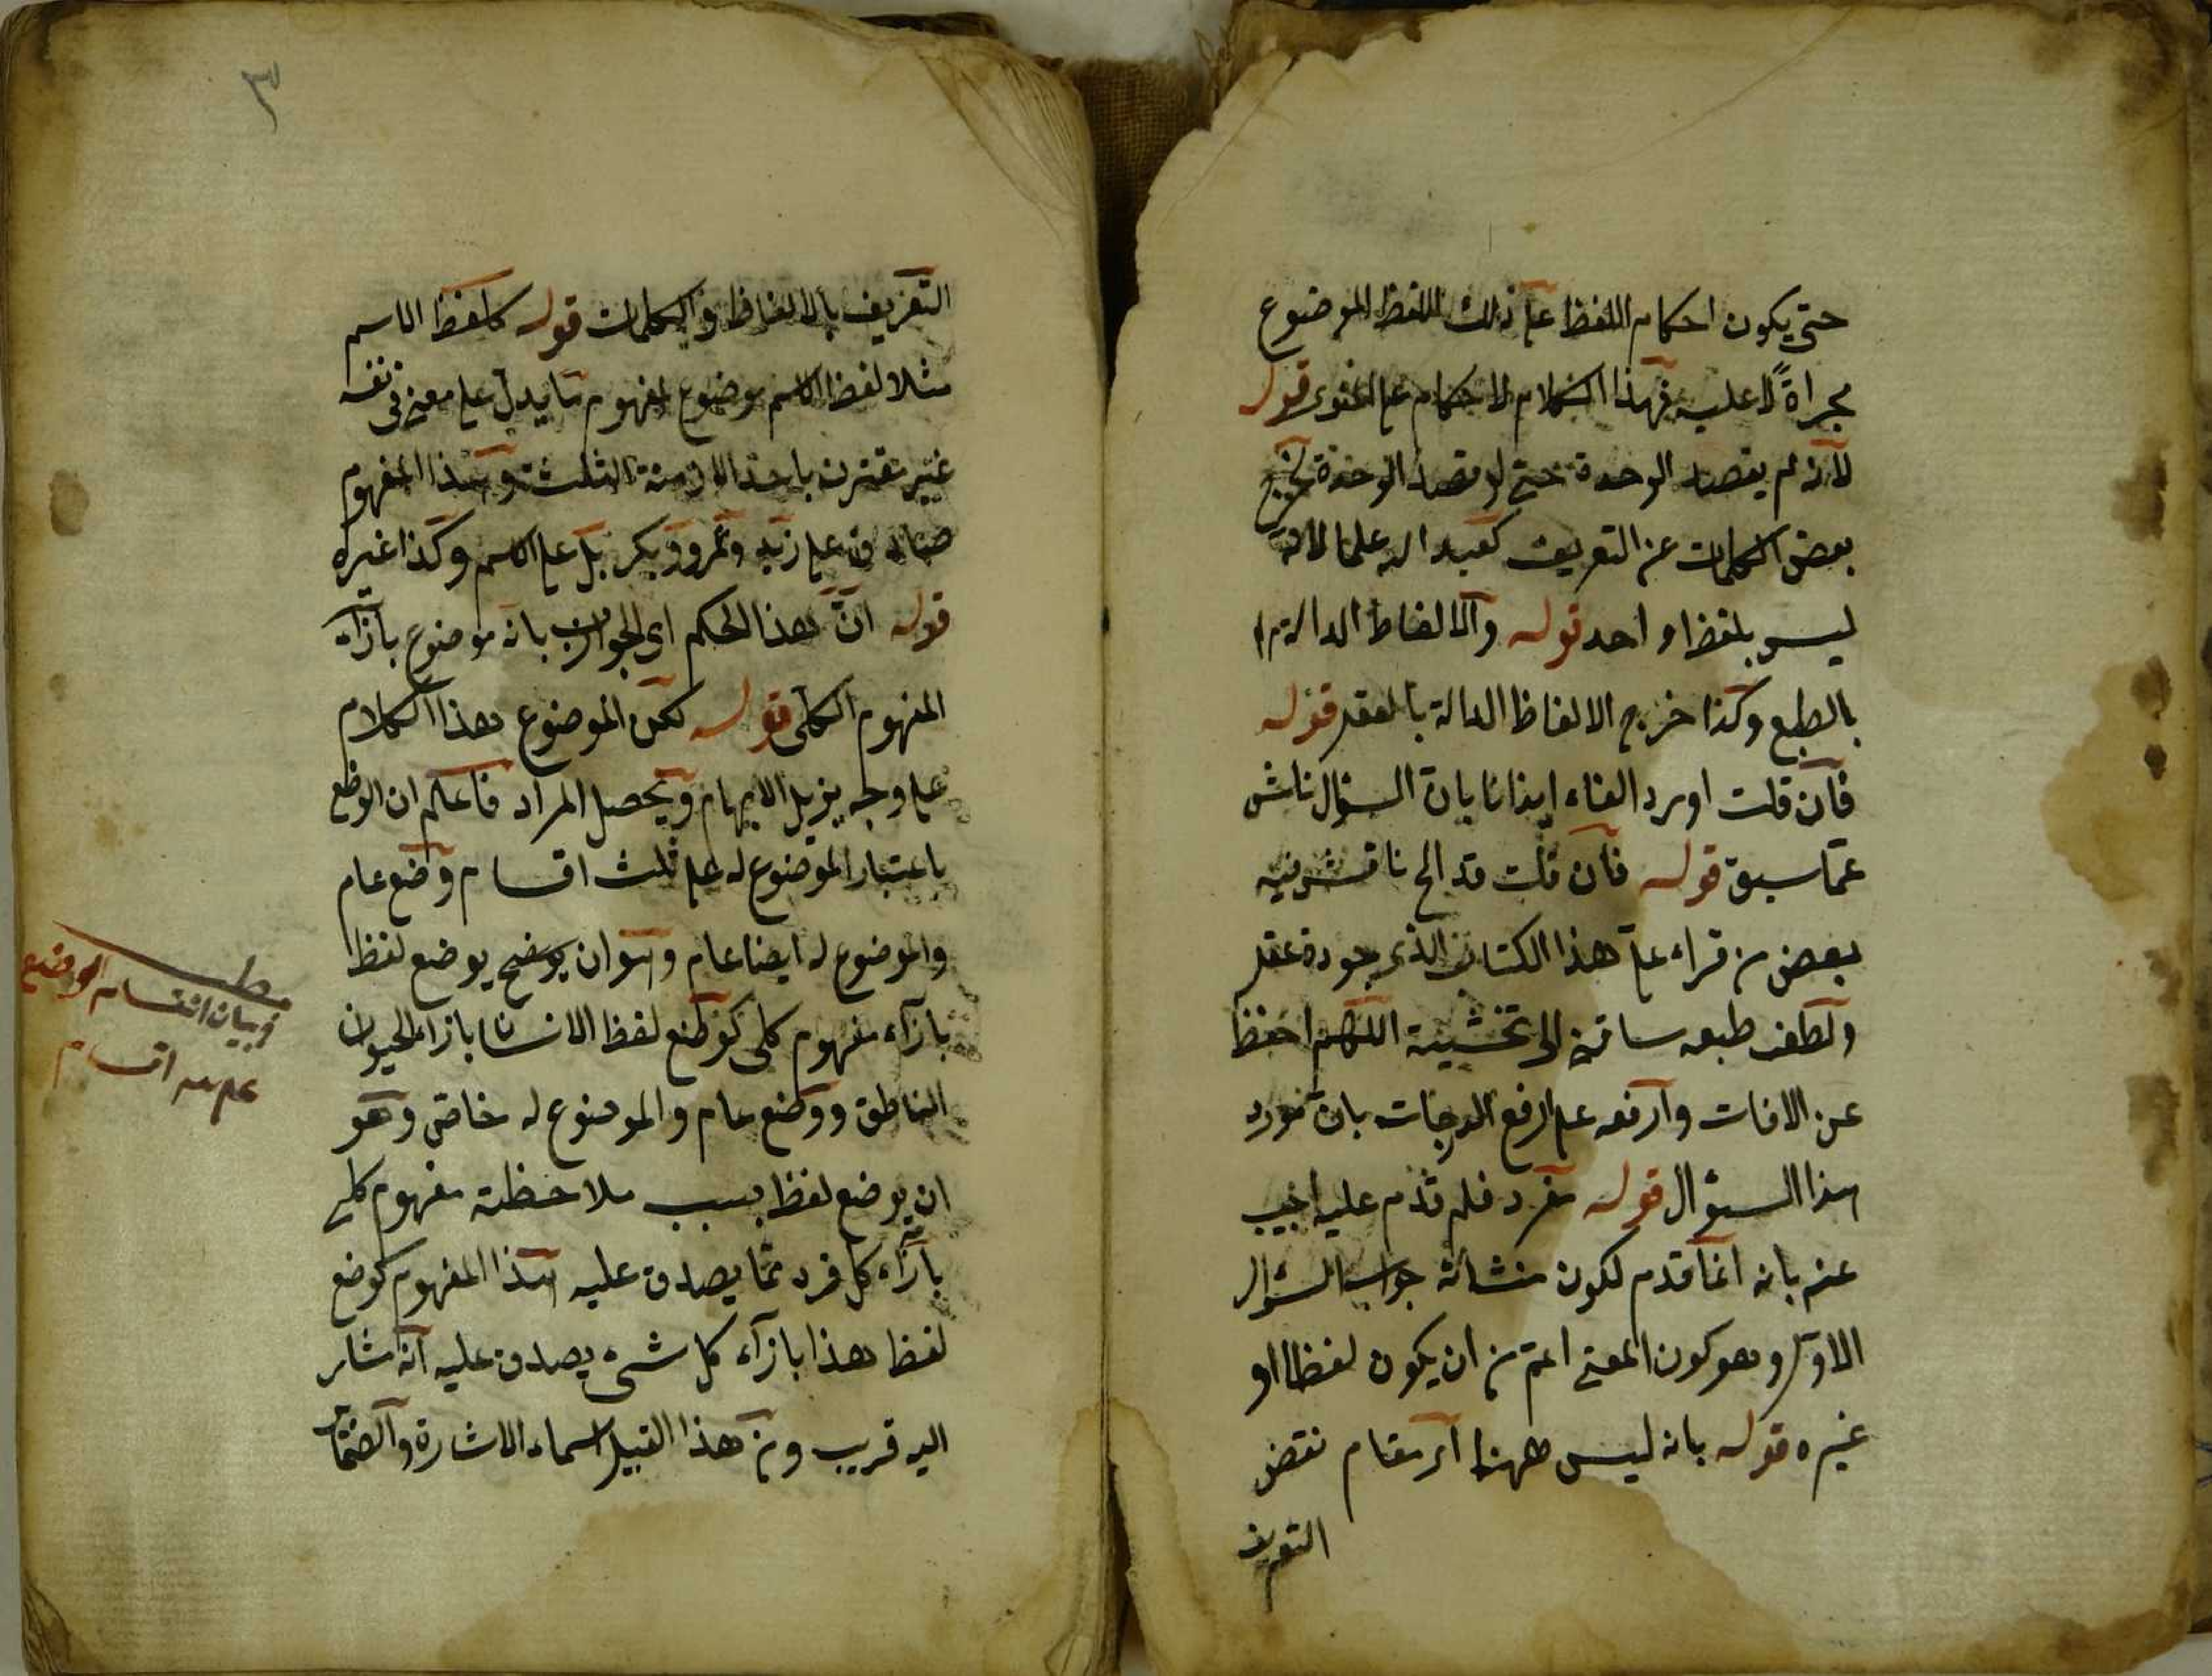 حتى يكون احكام اللفظ على ذلك اللفظ الموضوع
مجراة لا عليه فهذا الكلام لا حكام على المغنوى قوله
لانه لم يقصد الوحدة حتى لو قصد الوحدة لخرج
بعض الكلمات عن التعريف كعبد الله علما لانه
ليس بلفظ واحد قوله والالفاظ الدالة
بالطبع وكذا خرج الالفاظ الدالة بالعقل قوله
فان قلت اورد الفاء ايذانا بان السؤال ناش
عما سبق قوله فان قلت قد الخ ناقش فيه
بعض من قراء على هذا الكتاب الذى جودة عقله
ولطف طبعه ساقنى الى تحشيته اللهم احفظ
عن الافات وارفعه على ارفع الدرجات بان
هذا السؤال قوله مفرد فلم قدم عليه اجيب
عنه بانه انما قدم لكون منشائه جواب السؤال
الاول وهو كون المعنى اعم من ان يكون لفظا او
غيره قوله بانه ليس ههنا اى مقام نقض
التعريف
٣
التعريف بالالفاظ والكلمات قوله كلفظ الاسم
مثلا لفظ الاسم موضوع لمفهوم ما يدل على معنى فى نفسه
غير مقترن باحد الازمنة الثلثة وهذا المفهوم
صادق على زيد وعمرو وبكر بل على الاسم وكذا غيره
قوله ان هذا الحكم اى الجواب بانه موضوع بازاء
المفهوم الكلى قوله لكن الموضوع هذا الكلام
على وجه يزيل الابهام ويحصل المراد فاعلم ان الوضع
باعتبار الموضوع له على ثلث اقسام وضع عام
والموضوع له ايضا عام وهو ان يوضع لفظ
بازاء مفهوم كلى كوضع لفظ الانسان بازاء الحيوان
الناطق ووضع عام والموضوع له خاص وهو
ان يوضع لفظ بسبب ملاحظة مفهوم كلى
بازاء كل فرد مما يصدق عليه هذا المفهوم كوضع
لفظ هذا بازاء كل شىء يصدق عليه انه مشار
اليه قريب ومن هذا القبيل اسماء الاشارة والضمائر
مطلب
فى بيان انقسام الوضع
على اقسام